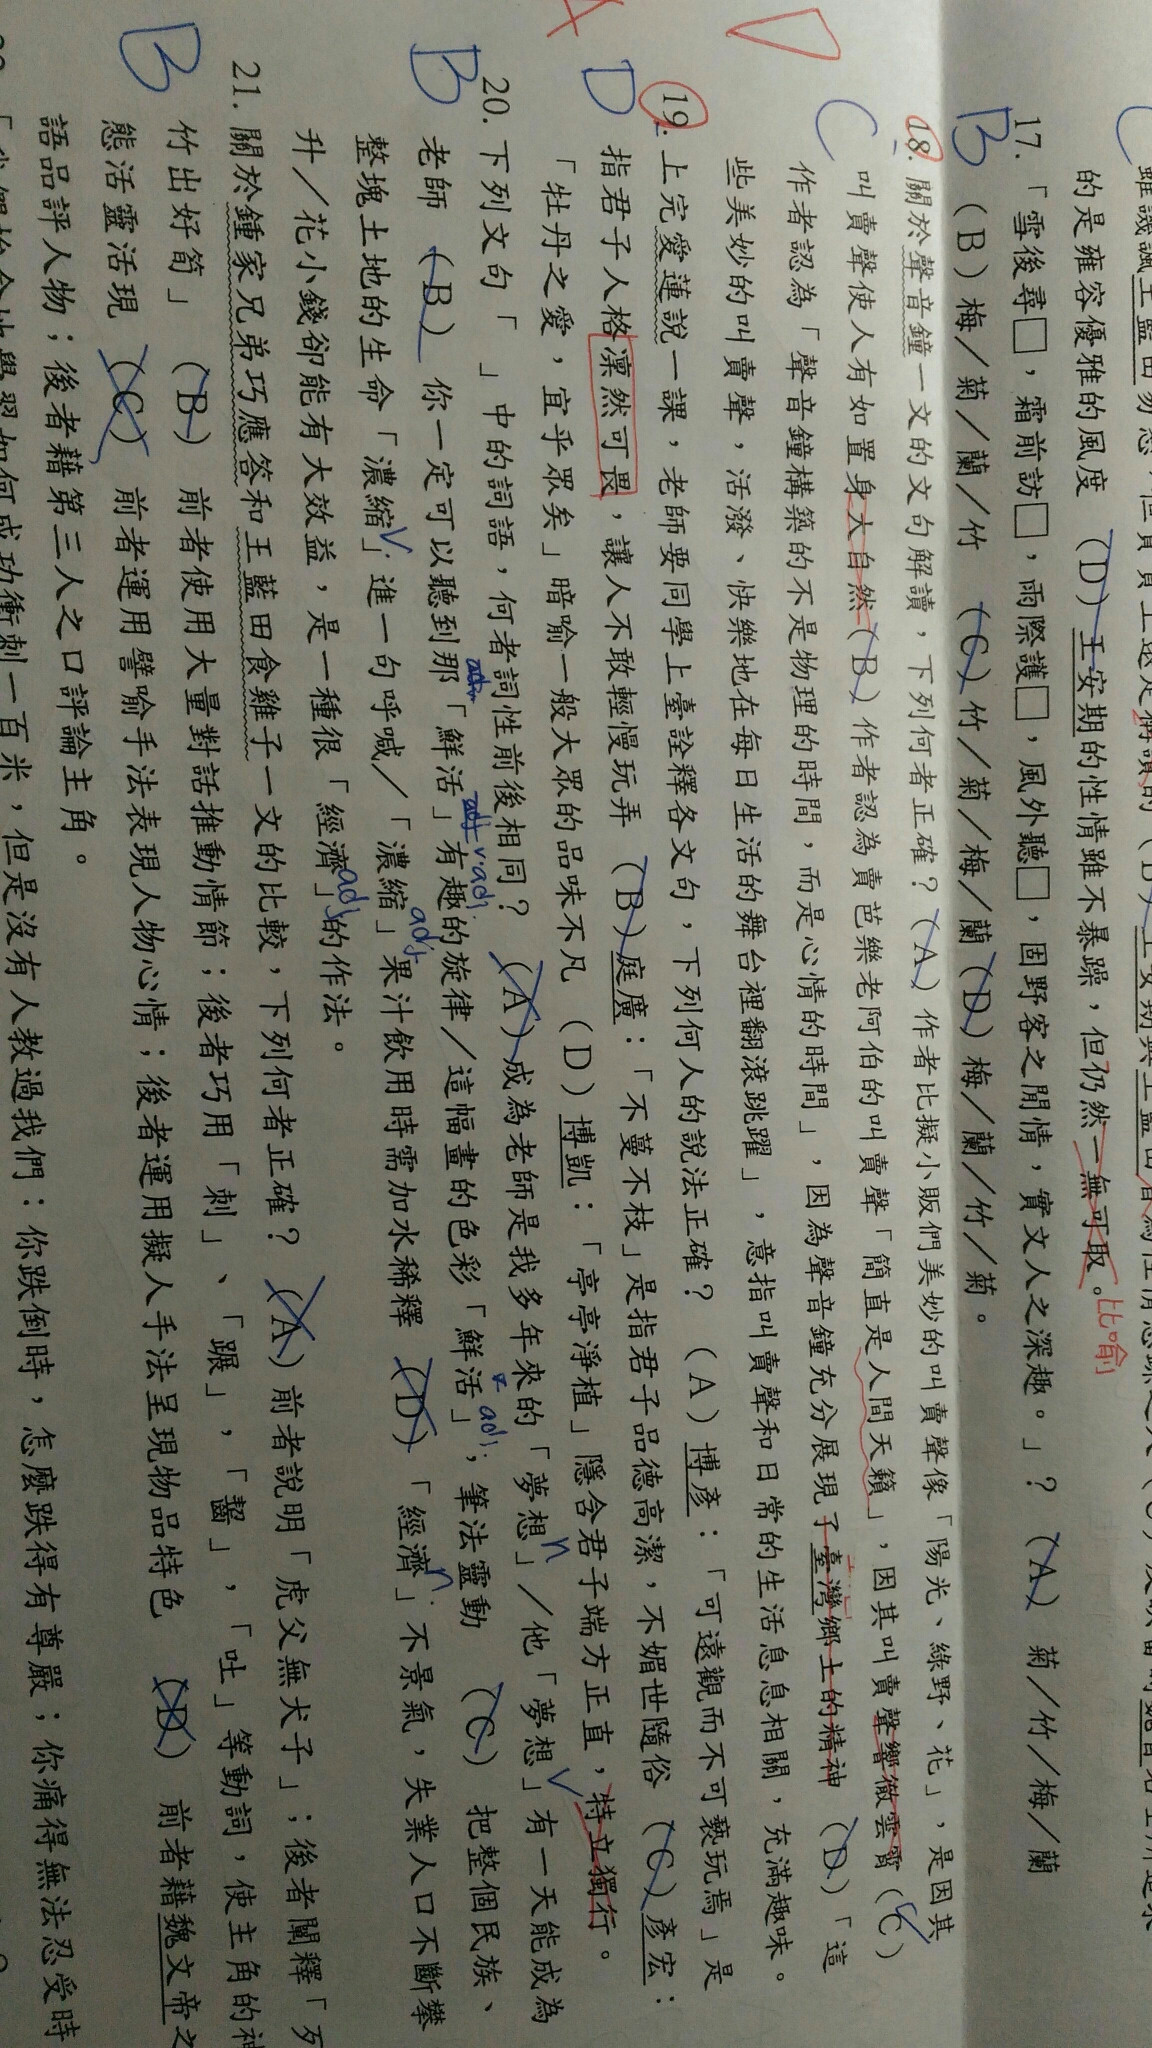 的是雍容優雅的風度 (D)王安期的性情雖不暴躁，但仍然一無可取。
比喻
17.「雪後尋□，霜前訪□，雨際護□，風外聽□，固野客之閒情，實文人之深趣。」？ (A) 菊／竹／梅／蘭
B
(B)梅／菊／蘭／竹 (C)竹／菊／梅／蘭(D)梅／蘭／竹／菊。
18.關於聲音鐘一文的文句解讀，下列何者正確？(A)作者比擬小販們美妙的叫賣聲像「陽光、綠野、花」，是因其
C
叫賣聲使人有如置身大自然(B)作者認為賣芭樂老阿伯的叫賣聲「簡直是人間天籟」，因其叫賣聲響徹雲霄(C)
作者認為「聲音鐘構築的不是物理的時間，而是心情的時間」，因為聲音鐘充分展現了臺灣鄉土的精神 (D)「這
些美妙的叫賣聲，活潑、快樂地在每日生活的舞台裡翻滾跳躍」，意指叫賣聲和日常的生活息息相關，充滿趣味。
19.上完愛蓮說一課，老師要同學上臺詮釋各文句，下列何人的說法正確？ (A)博彥：「可遠觀而不可褻玩焉」是
D
指君子人格凜然可畏，讓人不敢輕慢玩弄 (B)庭廣：「不蔓不枝」是指君子品德高潔，不媚世隨俗 (C)彥宏：
「牡丹之愛，宜乎眾矣」暗喻一般大眾的品味不凡 (D)博凱：「亭亭淨植」隱含君子端方正直，特立獨行。
20.下列文句「 」中的詞語，何者詞性前後相同？ (A)成為老師是我多年來的「夢想」／他「夢想」有一天能成為
n
v
B
老師 (B) 你一定可以聽到那「鮮活」有趣的旋律／這幅畫的色彩「鮮活」，筆法靈動 (C) 把整個民族、
adj
adj.
整塊土地的生命「濃縮」進一句呼喊／「濃縮」果汁飲用時需加水稀釋 (D) 「經濟」不景氣，失業人口不斷攀
v.
adj
n.
升／花小錢卻能有大效益，是一種很「經濟」的作法。
adj
21.關於鍾家兄弟巧應答和王藍田食雞子一文的比較，下列何者正確？ (A)前者說明「虎父無犬子」；後者闡釋「歹
B
竹出好筍」 (B) 前者使用大量對話推動情節；後者巧用「刺」、「蹍」，「齧」，「吐」等動詞，使主角的神
態活靈活現 (C) 前者運用譬喻手法表現人物心情；後者運用擬人手法呈現物品特色 (D) 前者藉魏文帝之
語品評人物；後者藉第三人之口評論主角。
如何成功衝刺一百米，但是沒有人教過我們：你跌倒時，怎麼跌得有尊嚴；你痛得無法忍受時